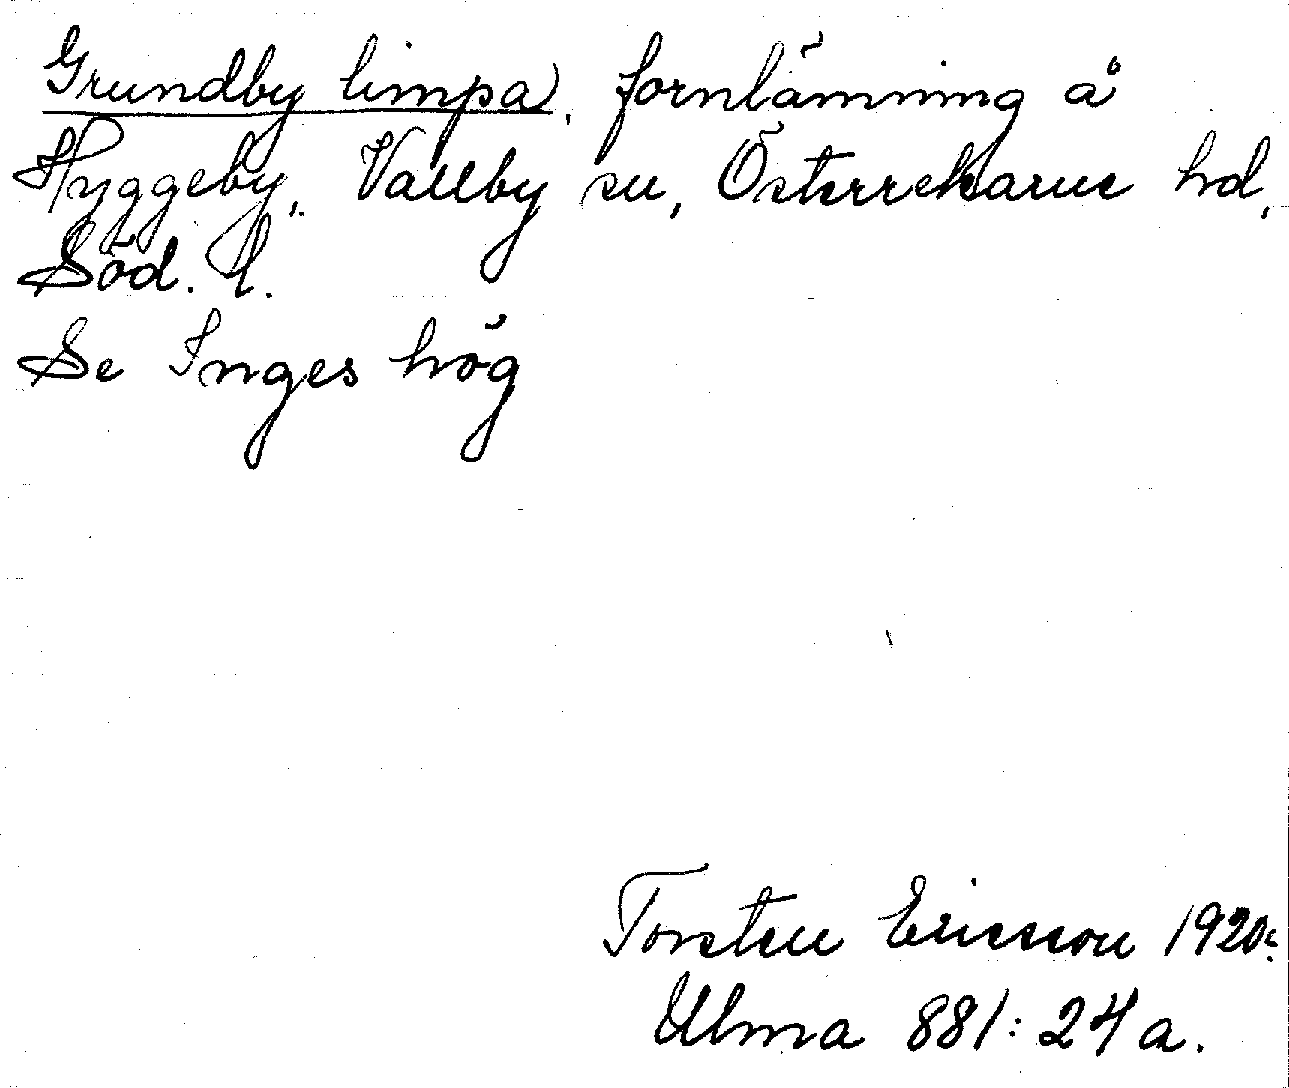 Grundby limpa, fornlämning å
Hyggeby, Vallby sn, Österrekarne hd,
Söd. l.
Se Inges hög
Torsten Ericsson 1920.
Ulma 881:24a.